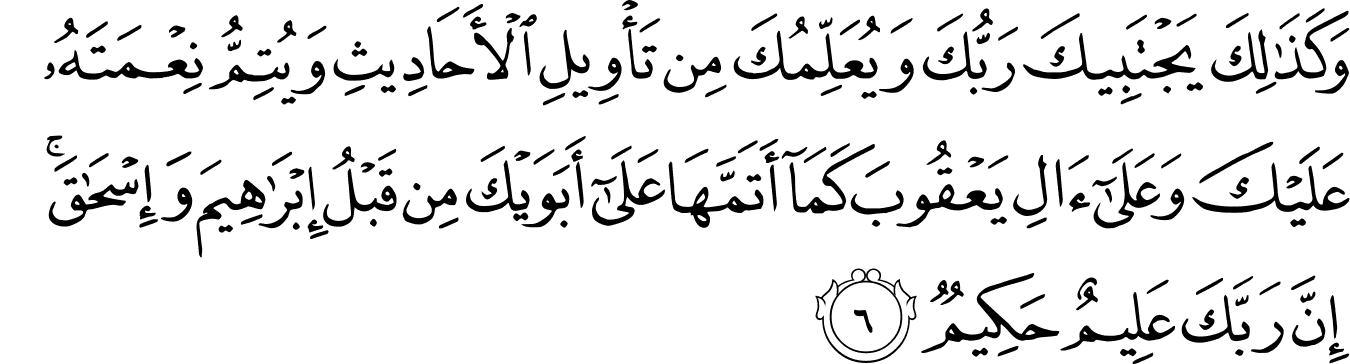 وَكَذَٰلِكَ يَجْتَبِيكَ رَبُّكَ وَيُعَلِّمُكَ مِن تَأْوِيلِ ٱلْأَحَادِيثِ وَيُتِمُّ نِعْمَتَهُۥ
عَلَيْكَ وَعَلَىٰٓ ءَالِ يَعْقُوبَ كَمَآ أَتَمَّهَا عَلَىٰٓ أَبَوَيْكَ مِن قَبْلُ إِبْرَٰهِيمَ وَإِسْحَٰقَ ۚ
إِنَّ رَبَّكَ عَلِيمٌ حَكِيمٌ ٦